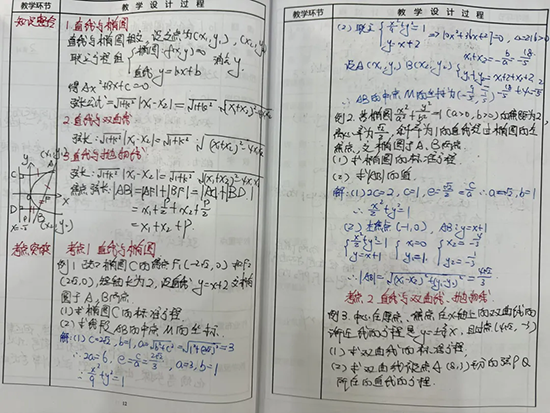 教学环节
教 学 设 计 过 程
知识整合
1.直线与椭圆
直线与椭圆相交,设交点为(x₁,y₁),(x₂,y₂)
联立方程组 {椭圆 f(x,y)=0 消去y.
直线 y=kx+b
得Ax²+Bx+C=0
弦长公式=√1+k² |x₁-x₂|=√1+k²·√(x₁+x₂)²-4x₁x₂
2.直线与双曲线
弦长:√1+k²·|x₁-x₂|=√1+k²·√(x₁+x₂)²-4x₁x₂
3.直线与抛物线
弦长=√1+k² |x₁-x₂|=√1+k²·√(x₁+x₂)²-4x₁x₂
焦点弦长:|AB|=|AF|+|BF|=|AC|+|BD|
=x₁+p/2+x₂+p/2
=x₁+x₂+p.
考点突破
考点1 直线与椭圆
例1.已知椭圆C的焦点F₁(-2√2,0)和F₂
(2√2,0),长轴长为2,设直线y=x+2交椭
圆于A、B两点
(1)求椭圆C的标准方程
(2)求线段AB的中点M的坐标.
解:(1) c=2√2, b=1, a=√b²+c²=√1²+(2√2)²=3
∴2a=6. e=c/a=2√2/3 a=3, b=1
∴x²/9+y²=1
12
教学环节
教 学 设 计 过 程
(2) 联立 {x²/9+y²=1
y=x+2
⇒10x²+36x+27=0, Δ=216>0
设A(x₁,y₁) B(x₂,y₂)
x₁+x₂=-b/a=-18/5
y₁+y₂=x₁+2+x₂+2
∴AB的中点M的坐标为(-9/5,1/5)
例2.若椭圆x²/a²+y²/b²=1(a>0,b>0)的焦距为2,
离心率为√2/2,斜率为1的直线过椭圆的左
焦点,交椭圆于A、B两点
(1)求椭圆的标准方程
(2)求|AB|的值.
解:(1) 2c=2, c=1, e=√2/2=c/a ∴a=√2, b=1
∴x²/2+y²=1
(2) 左焦点(-1,0), AB:y=x+1
{x²/2+y²=1 {x=0 {x₂=-4/3
y=x+1 y=1. y₂=-1/3
∴|AB|=√(x₁-x₂)²+(y₁-y₂)²=4√2/3
考点2 直线与双曲线、抛物线
例3.中心在原点,焦点在x轴上的双曲线的
(1)求双曲线的标准方程.
所在的直线的方程.